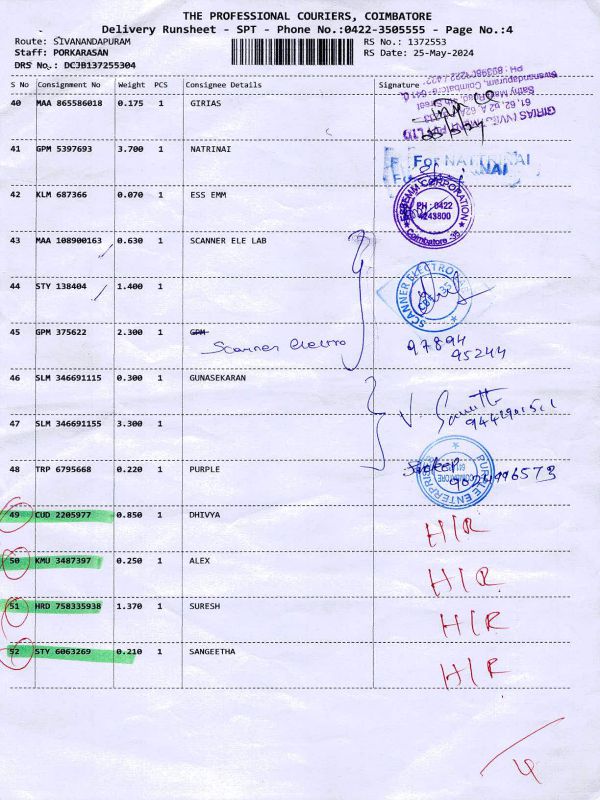 THE PROFESSIONAL COURIERS, COIMBATORE
Delivery Runsheet - SPT - Phone No.:0422-3505555 - Page No.:4
Route: SIVANANDAPURAM RS No.: 1372553
Staff: PORKARASAN RS Date: 25-May-2024
DRS No.: DCJB137255304
S No Consignment No Weight PCS Consignee Details Signature
40 MAA 865586018 0.175 1 GIRIAS
41 GPM 5397693 3.700 1 NATRINAI
For NATRINAI
42 KLM 687366 0.070 1 ESS EMM
ESSEMM CORPORATION
PH : 0422
4243800
Coimbatore-35
43 MAA 108900163 0.630 1 SCANNER ELE LAB
44 STY 138404 1.400 1
SCANNER ELECTRO
CBE-35
45 GPM 375622 2.300 1 GPM
Scanner electro
97894
95244
46 SLM 346691115 0.300 1 GUNASEKARAN
47 SLM 346691155 3.300 1
48 TRP 6795668 0.220 1 PURPLE
PURPLE ENTERPRISE
COIMBATORE
49 CUD 2205977 0.850 1 DHIVYA H/R
50 KMU 3487397 0.250 1 ALEX H/R
51 HRD 758335938 1.370 1 SURESH H/R
52 STY 6063269 0.210 1 SANGEETHA H/R